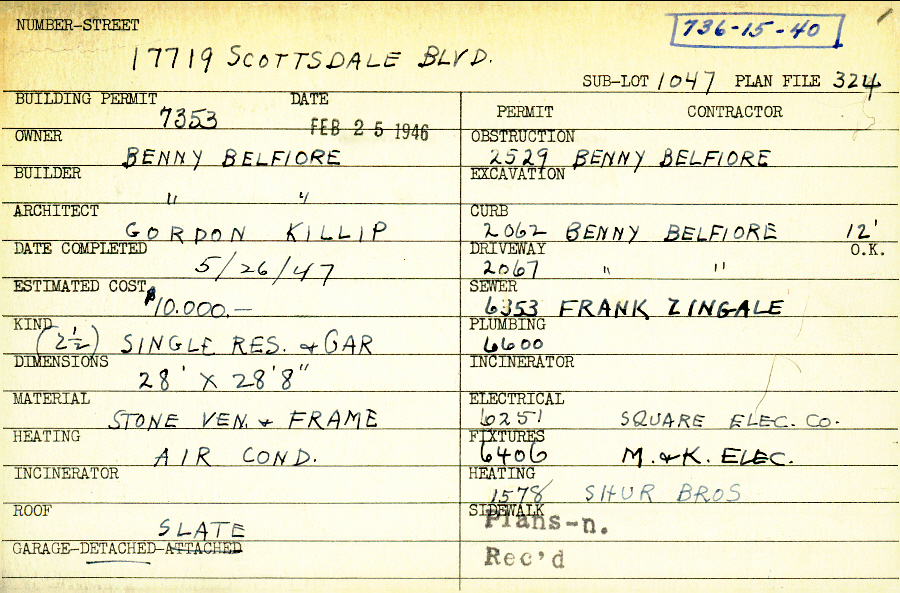 NUMBER-STREET
736-15-40
17719 SCOTTSDALE BLVD.
SUB-LOT 1047 PLAN FILE 324
BUILDING PERMIT DATE
7353 FEB 25 1946
OWNER
BENNY BELFIORE
BUILDER
" "
ARCHITECT
GORDON KILLIP
DATE COMPLETED
5/26/47
ESTIMATED COST
$10.000.—
KIND
(2½) SINGLE RES. & GAR
DIMENSIONS
28' X 28'8"
MATERIAL
STONE VEN. & FRAME
HEATING
AIR COND.
INCINERATOR
ROOF
SLATE
GARAGE-DETACHED-ATTACHED
PERMIT CONTRACTOR
OBSTRUCTION
2529 BENNY BELFIORE
EXCAVATION
CURB
2062 BENNY BELFIORE 12'
DRIVEWAY O.K.
2067 " "
SEWER
6353 FRANK ZINGALE
PLUMBING
6600
INCINERATOR
ELECTRICAL
6251 SQUARE ELEC. CO.
FIXTURES
6406 M. & K. ELEC.
HEATING
1578 SHUR BROS
SIDEWALK
Plans-n.
Rec'd